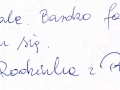 ale. Bardzo fa
u się.
Rodzinka z P